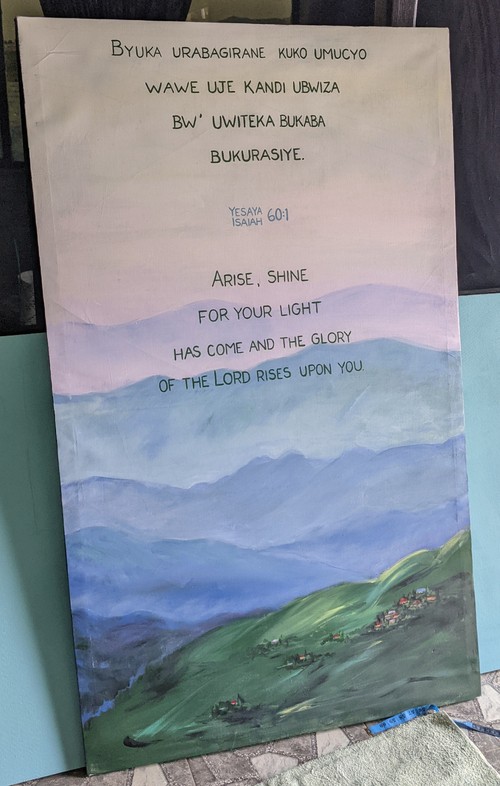 BYUKA URABAGIRANE KUKO UMUCYO
WAWE UJE KANDI UBWIZA
BW' UWITEKA BUKABA
BUKURASIYE.
YESAYA
ISAIAH 60:1
ARISE, SHINE
FOR YOUR LIGHT
HAS COME AND THE GLORY
OF THE LORD RISES UPON YOU.